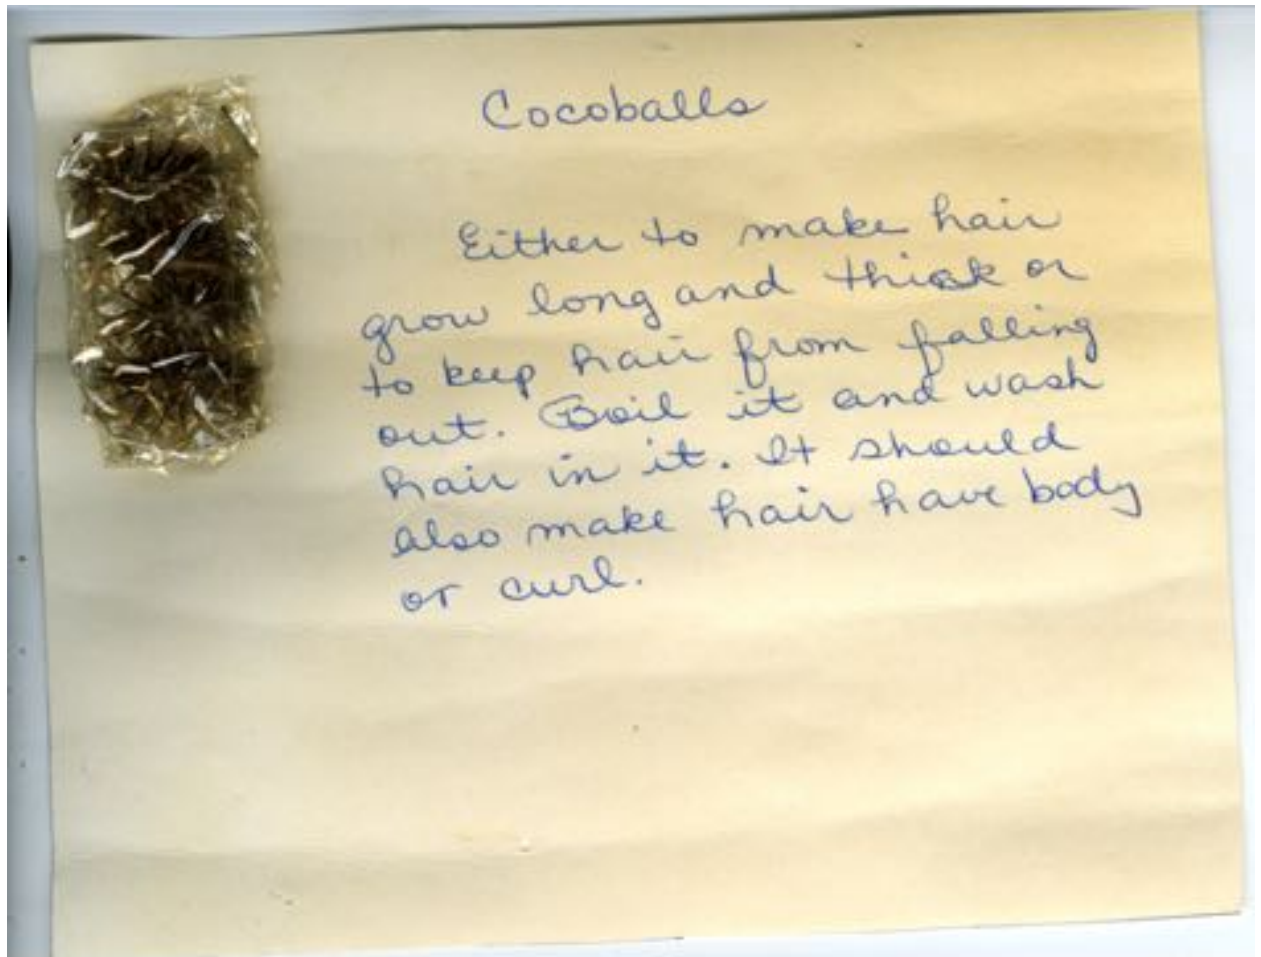 Cocoballs
Either to make hair
grow long and thick or
to keep hair from falling
out. Boil it and wash
hair in it. It should
also make hair have body
or curl.